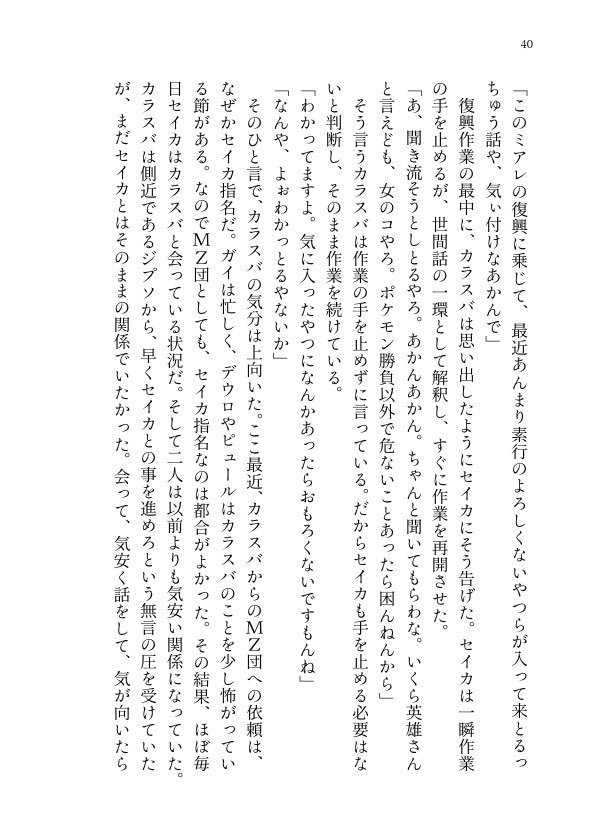 40
「このミアレの復興に乗じて、最近あんまり素行のよろしくないやつらが入って来とるっ
ちゅう話や、気ぃ付けなあかんで」
復興作業の最中に、カラスバは思い出したようにセイカにそう告げた。セイカは一瞬作業
の手を止めるが、世間話の一環として解釈し、すぐに作業を再開させた。
「あ、聞き流そうとしとるやろ。あかんあかん。ちゃんと聞いてもらわな。いくら英雄さん
と言えども、女のコやろ。ポケモン勝負以外で危ないことあったら困んねんから」
そう言うカラスバは作業の手を止めずに言っている。だからセイカも手を止める必要はな
いと判断し、そのまま作業を続けている。
「わかってますよ。気に入ったやつになんかあったらおもろくないですもんね」
「なんや、よぉわかっとるやないか」
そのひと言で、カラスバの気分は上向いた。ここ最近、カラスバからのＭＺ団への依頼は、
なぜかセイカ指名だ。ガイは忙しく、デウロやピュールはカラスバのことを少し怖がってい
る節がある。なのでＭＺ団としても、セイカ指名なのは都合がよかった。その結果、ほぼ毎
日セイカはカラスバと会っている状況だ。そして二人は以前よりも気安い関係になっていた。
カラスバは側近であるジプソから、早くセイカとの事を進めろという無言の圧を受けていた
が、まだセイカとはそのままの関係でいたかった。会って、気安く話をして、気が向いたら